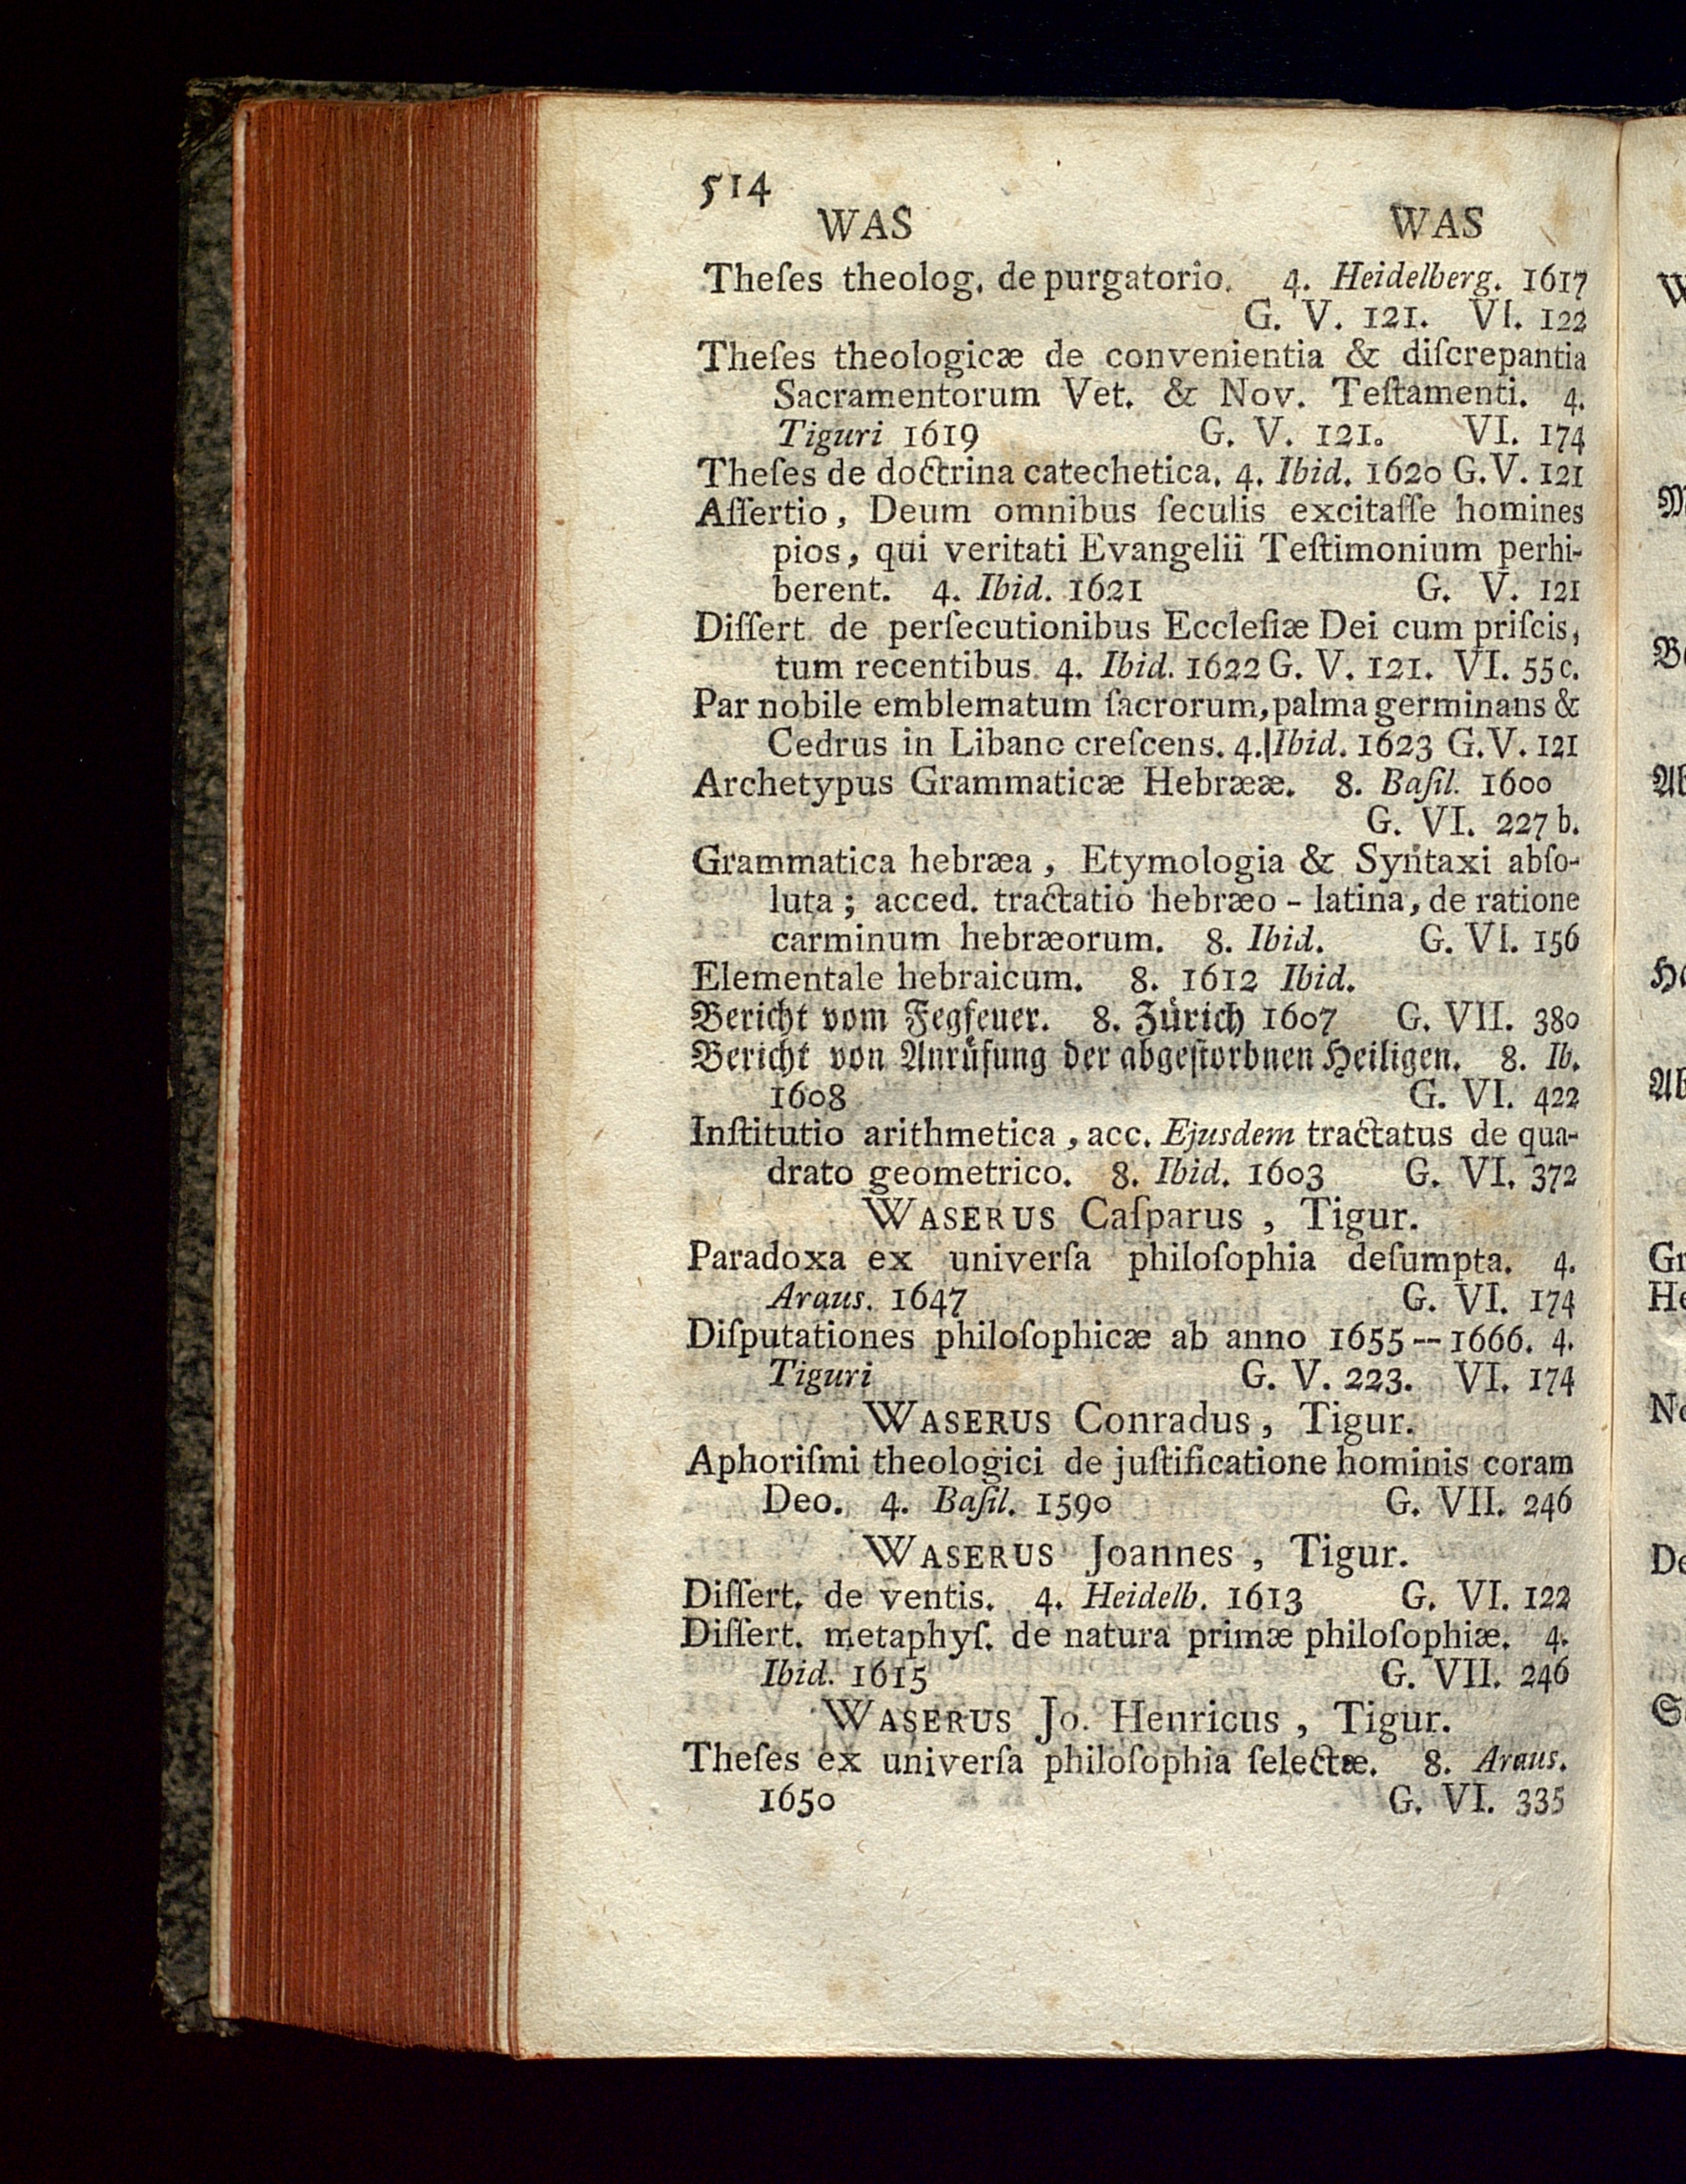 514
WAS WAS
Theſes theolog. de purgatorio. 4. Heidelberg. 1617
G. V. 121. VI. 122
Theſes theologicæ de convenientia & diſcrepantia
Sacramentorum Vet. & Nov. Teſtamenti. 4.
Tiguri 1619 G. V. 121. VI. 174
Theſes de doctrina catechetica. 4. Ibid. 1620 G. V. 121
Aſſertio, Deum omnibus ſeculis excitaſſe homines
pios, qui veritati Evangelii Teſtimonium perhi-
berent. 4. Ibid. 1621 G. V. 121
Diſſert. de perſecutionibus Eccleſiæ Dei cum priſcis,
tum recentibus. 4. Ibid. 1622 G. V. 121. VI. 55 c.
Par nobile emblematum ſacrorum, palma germinans &
Cedrus in Libano creſcens. 4. Ibid. 1623 G. V. 121
Archetypus Grammaticæ Hebrææ. 8. Baſil. 1600
G. VI. 227 b.
Grammatica hebræa, Etymologia & Syntaxi abſo-
luta; acced. tractatio hebræo - latina, de ratione
carminum hebræorum. 8. Ibid. G. VI. 156
Elementale hebraicum. 8. 1612 Ibid.
Bericht vom Fegfeuer. 8. Zürich 1607 G. VII. 380
Bericht von Anrüfung der abgeſtorbnen Heiligen. 8. Ib.
1608 G. VI. 422
Inſtitutio arithmetica, acc. Ejusdem tractatus de qua-
drato geometrico. 8. Ibid. 1603 G. VI. 372
WASERUS Caſparus, Tigur.
Paradoxa ex univerſa philoſophia deſumpta. 4.
Araus. 1647 G. VI. 174
Diſputationes philoſophicæ ab anno 1655 -- 1666. 4.
Tiguri G. V. 223. VI. 174
WASERUS Conradus, Tigur.
Aphoriſmi theologici de juſtificatione hominis coram
Deo. 4. Baſil. 1590 G. VII. 246
WASERUS Joannes, Tigur.
Diſſert. de ventis. 4. Heidelb. 1613 G. VI. 122
Diſſert. metaphyſ. de natura primæ philoſophiæ. 4.
Ibid. 1615 G. VII. 246
WASERUS Jo. Henricus, Tigur.
Theſes ex univerſa philoſophia ſelectæ. 8. Araus.
1650 G. VI. 335